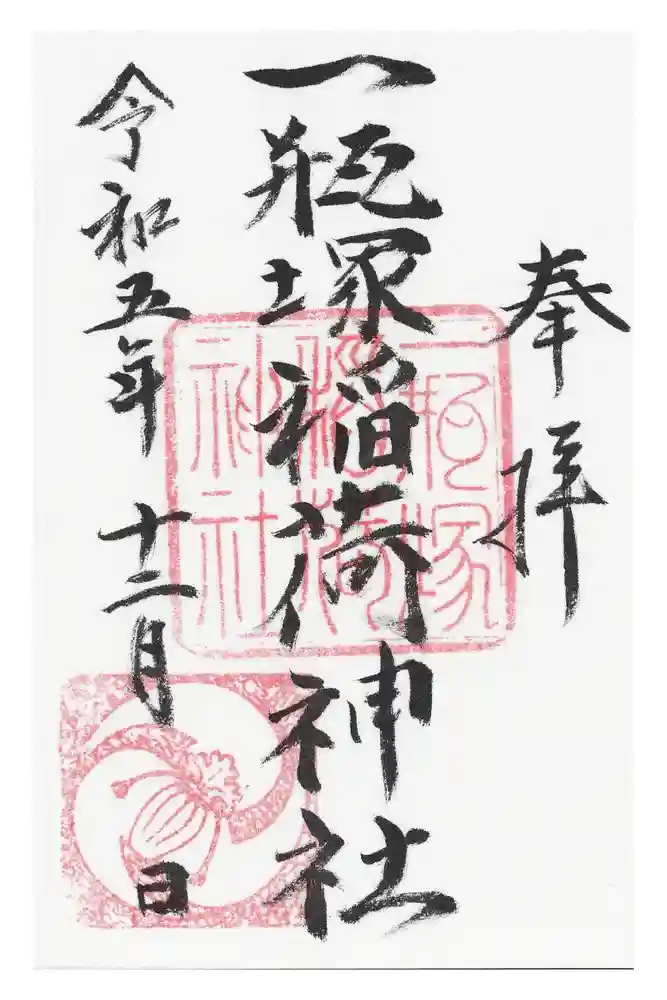 奉拝
一瓶塚稲荷神社
令和五年十二月 日
一瓶塚
稲荷
神社